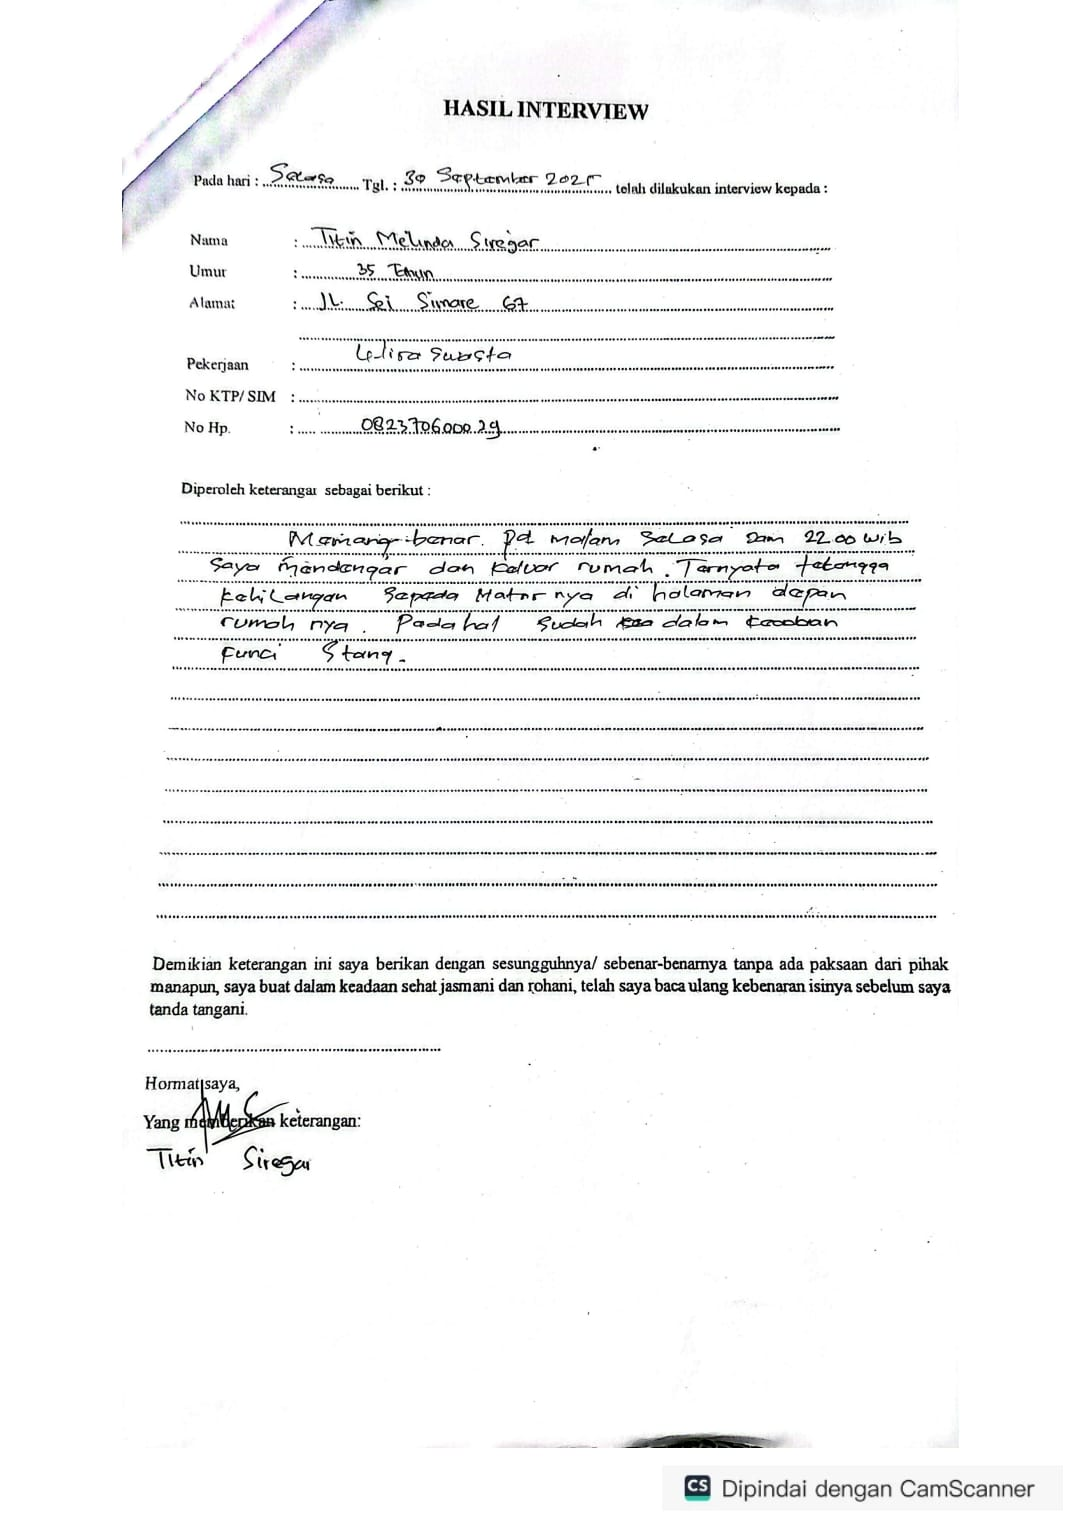 HASIL INTERVIEW
Pada hari : Selasa Tgl. : 30 September 2025 telah dilakukan interview kepada :
Nama : Titin Melinda Siregar
Umur : 35 Tahun
Alamat : JL. Sei Simare 67
Pekerjaan :
No KTP/ SIM :
No Hp. : 082370600029
Diperoleh keterangan sebagai berikut :
Memang benar. Pd malam Selasa Jam 22.00 wib
Saya mendengar dan keluar rumah. Ternyata tetangga
kehilangan Sepeda Motor nya di halaman depan
rumah nya. Padahal Sudah dalam keadaan
kunci Stang.
Demikian keterangan ini saya berikan dengan sesungguhnya/ sebenar-benarnya tanpa ada paksaan dari pihak
manapun, saya buat dalam keadaan sehat jasmani dan rohani, telah saya baca ulang kebenaran isinya sebelum saya
tanda tangani.
Hormat saya,
Yang memberikan keterangan:
Titin Siregar
CS Dipindai dengan CamScanner